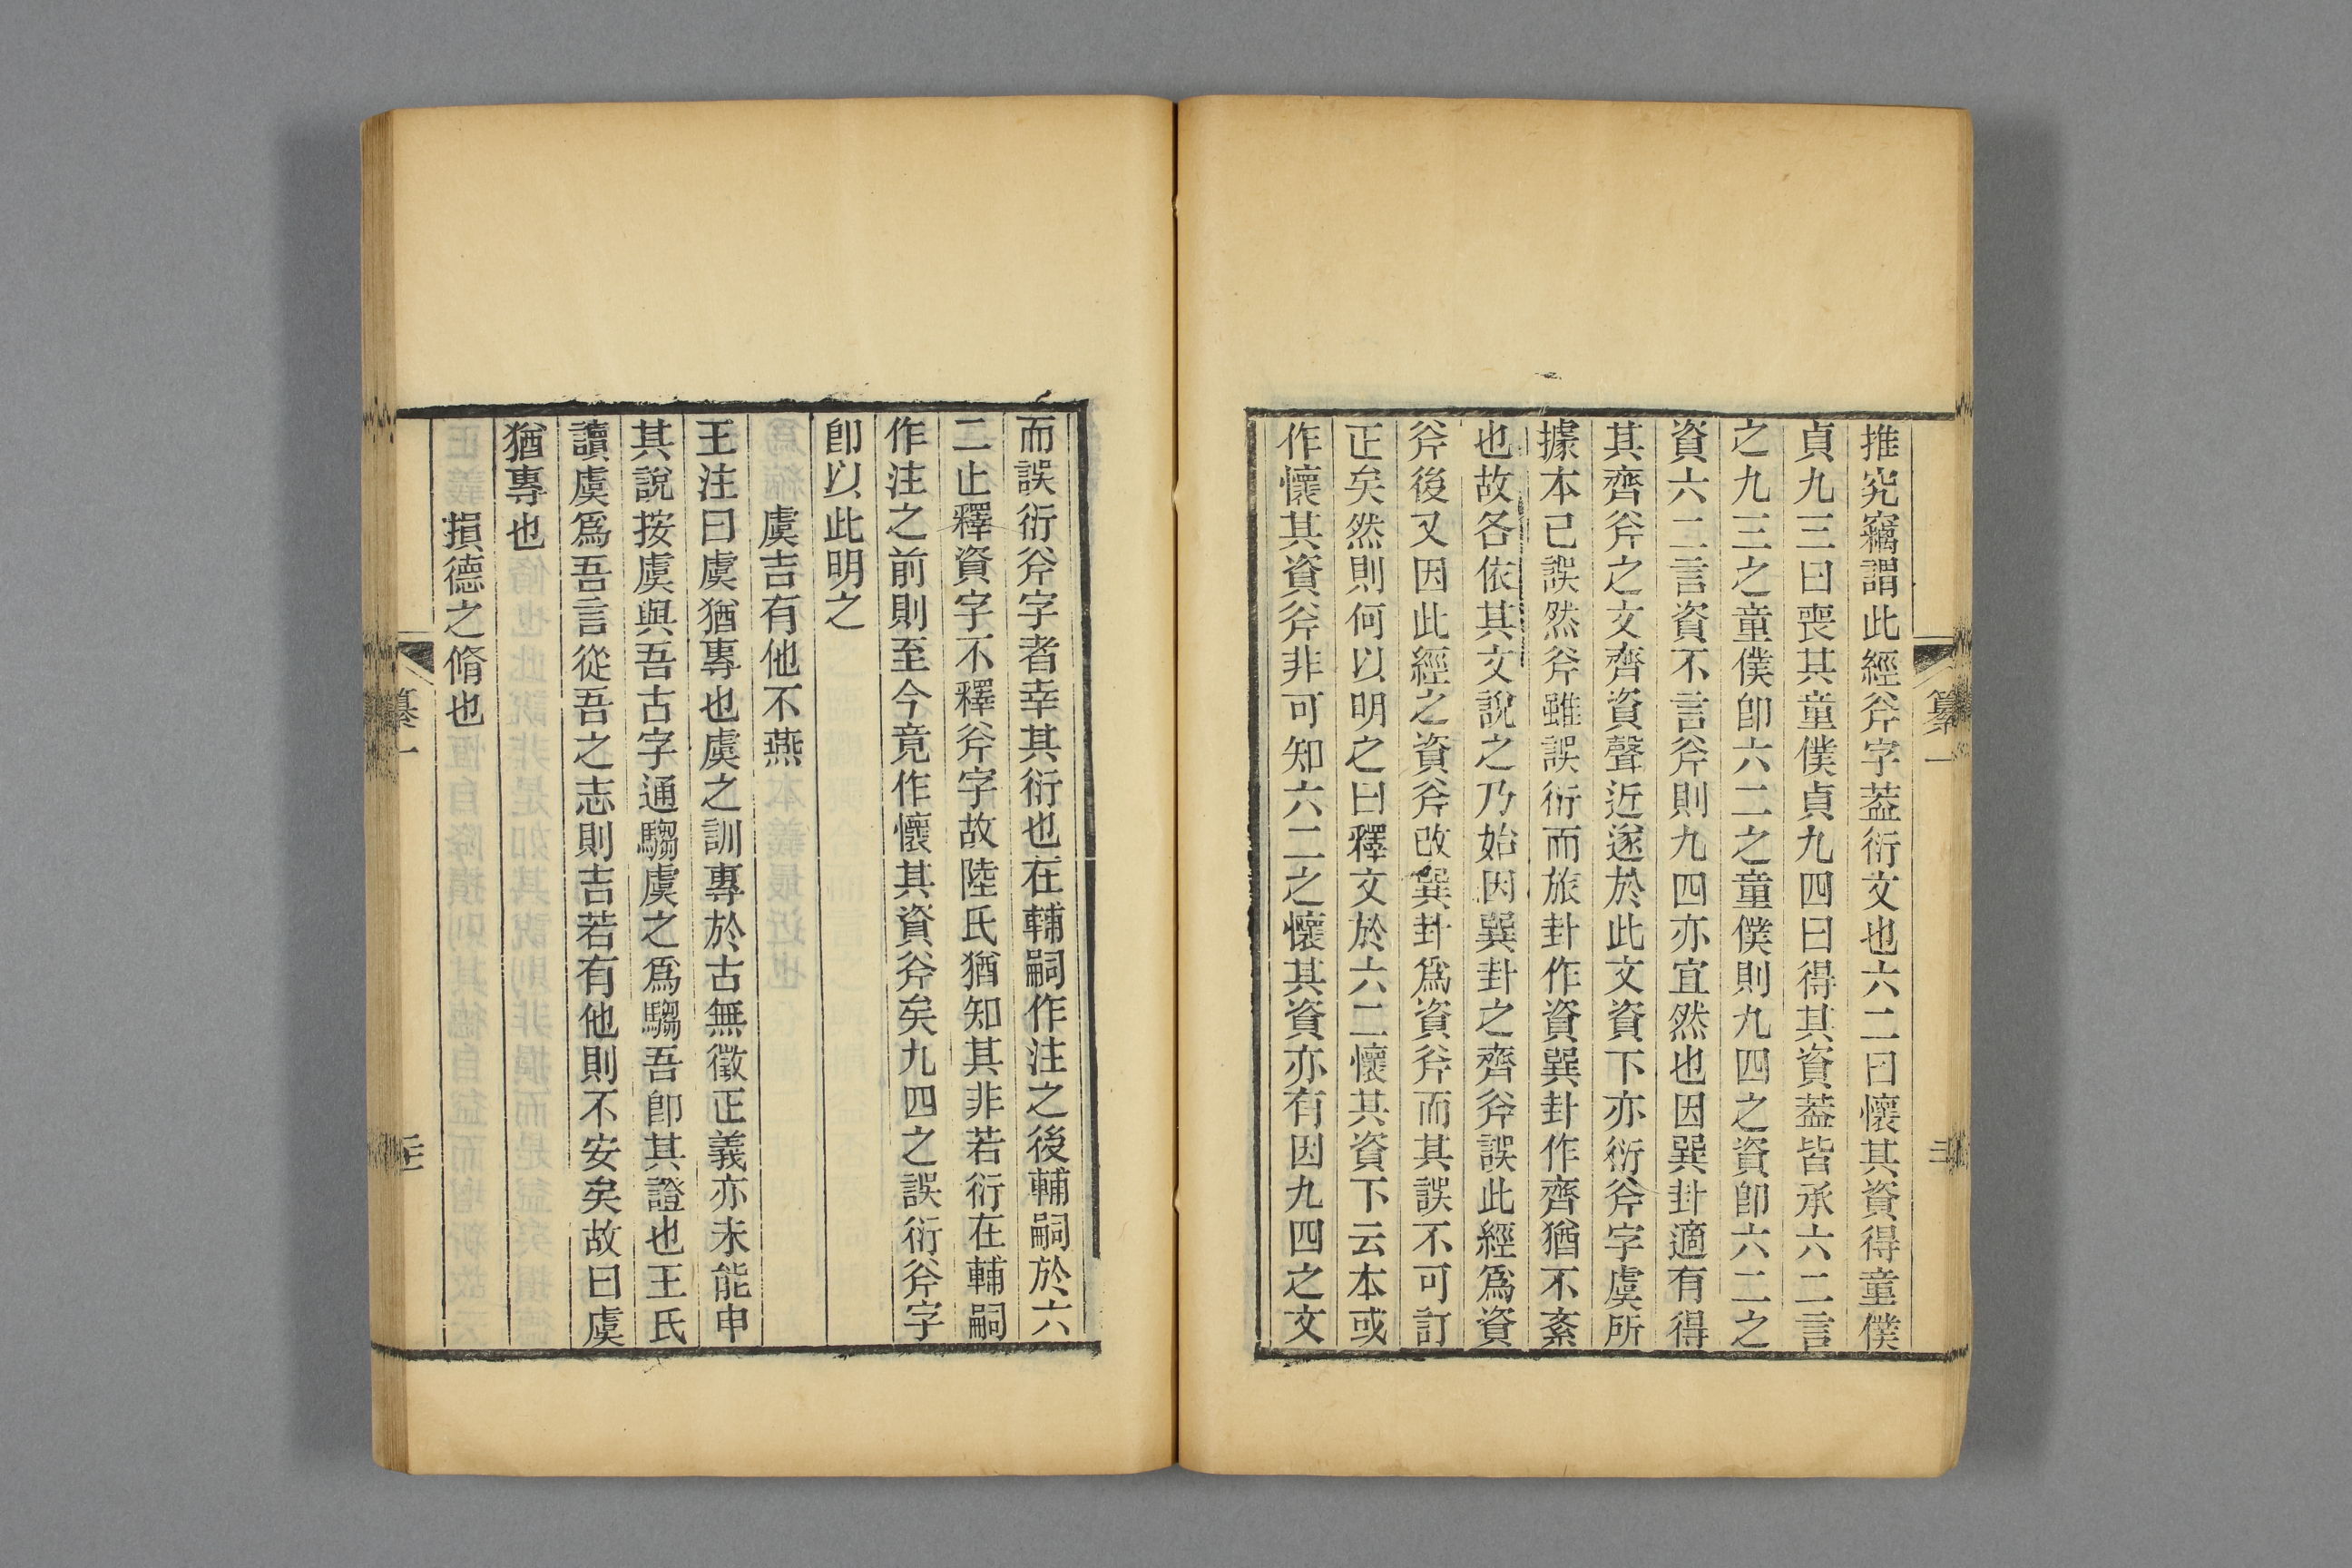 推究竊謂此經斧字葢衍文也六二曰懷其資得童僕
貞九三曰喪其童僕貞九四曰得其資葢皆承六二言
之九三之童僕卽六二之童僕則九四之資卽六二之
資六二言資不言斧則九四亦宜然也因巽卦適有得
其齊斧之文齊資聲近遂於此文資下亦衍斧字虞所
據本已誤然斧雖誤衍而旅卦作資巽卦作齊猶不紊
也故各依其文說之乃始因巽卦之齊斧誤此經爲資
斧後又因此經之資斧改巽卦爲資斧而其誤不可訂
正矣然則何以明之曰釋文於六二懷其資下云本或
作懷其資斧非可知六二之懷其資亦有因九四之文
而誤衍斧字者幸其衍也在輔嗣作注之後輔嗣於六
二止釋資字不釋斧字故陸氏猶知其非若衍在輔嗣
作注之前則至今竟作懷其資斧矣九四之誤衍斧字
卽以此明之
虞吉有他不燕
王注曰虞猶專也虞之訓專於古無徵正義亦未能申
其說按虞與吾古字通騶虞之爲騶吾卽其證也王氏
讀虞爲吾言從吾之志則吉若有他則不安矣故曰虞
猶專也
損德之脩也
纂一